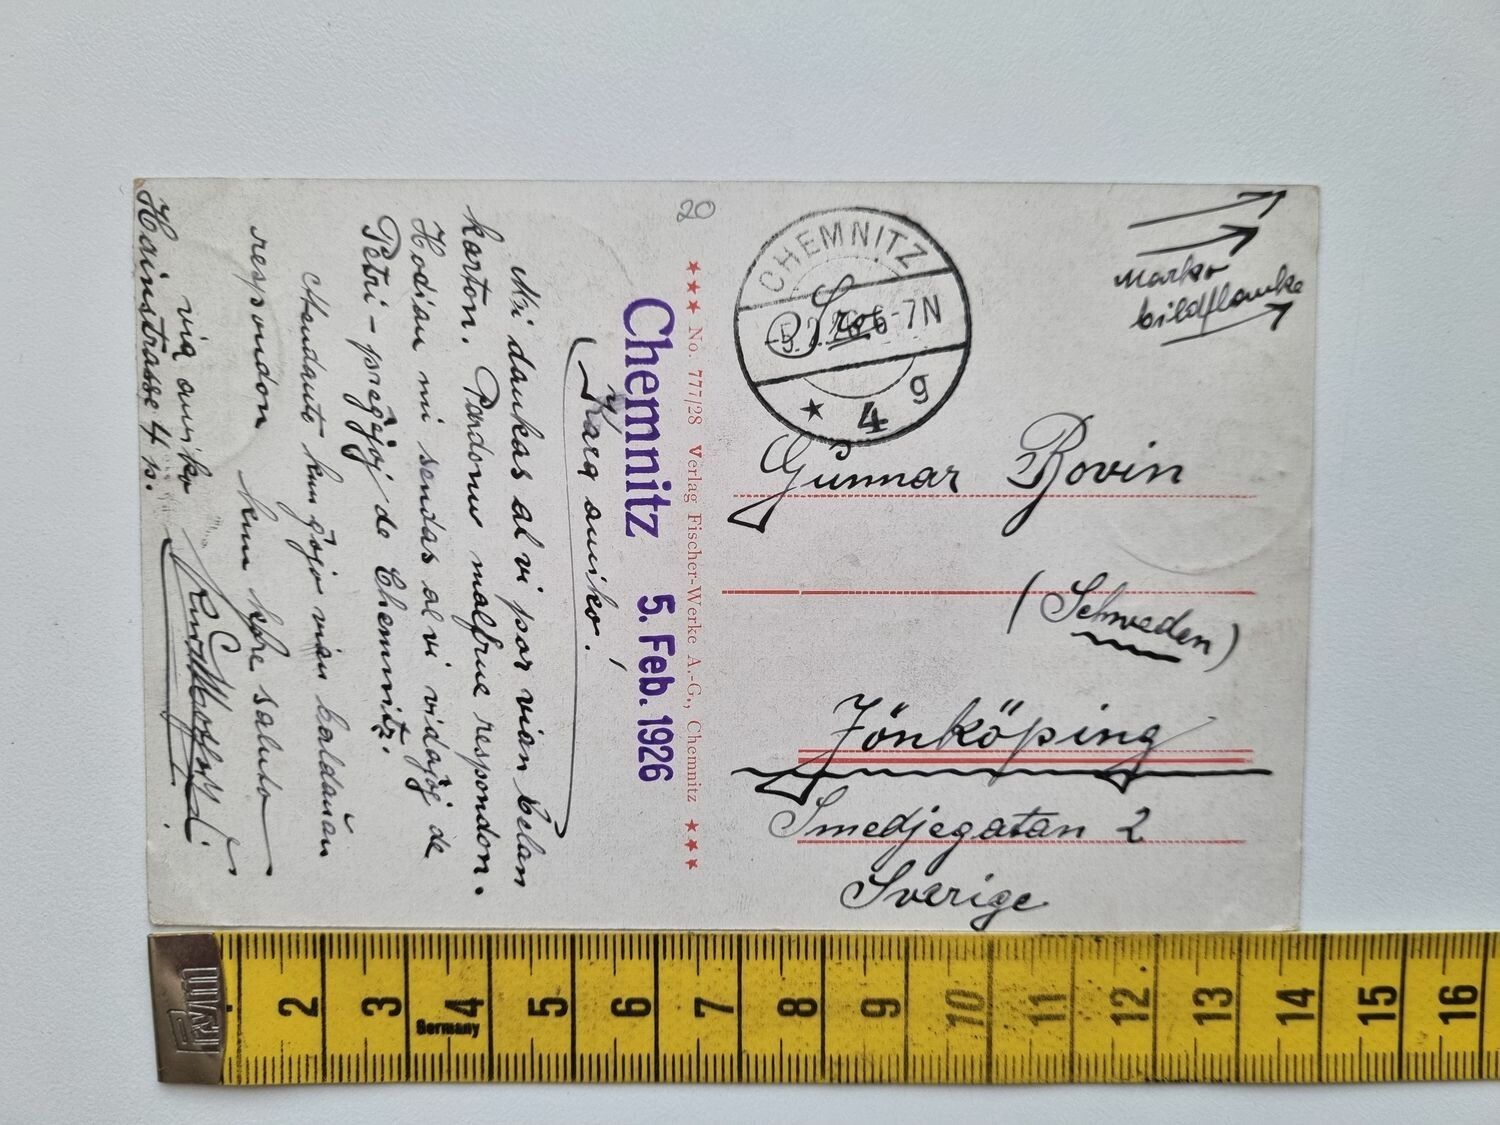 Chemnitz 5. Feb. 1926
Kara amiko!
Mi dankas al vi por vian belan
karton. Pardonu malfrue respondon.
Hodiaŭ mi sendas al vi vidajoj de
Petri-preĝejoj de Chemnitz.
Atendante kun ĝojo vian baldaŭan
respondon kun kore saluto
via amiko
Hainstrasse 4 p.
20
★★★ No. 777/28 Verlag Fischer-Werke A.-G., Chemnitz ★★★
CHEMNITZ
-5.2.26.6-7N
★ 4 g
marko
bildflanke
Gunnar Rovin
(Schweden)
Jönköping
Smedjegatan 2
Sverige
Prym
2 3 4 5 6 7 8 9 10 11 12 13 14 15 16
Germany